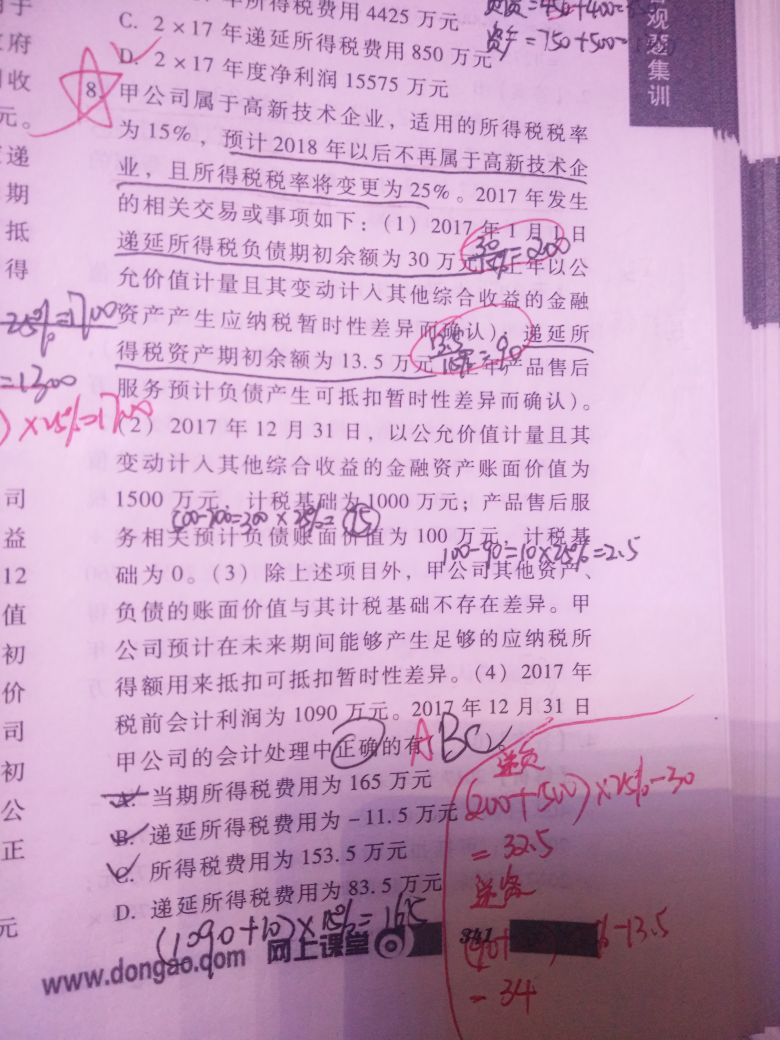 年所得税费用 4425 万元
C. 2×17 年递延所得税费用 850 万元
D. 2×17 年度净利润 15575 万元
=750+500
观
题
集
训
8.
甲公司属于高新技术企业，适用的所得税税率
为 15%，预计 2018 年以后不再属于高新技术企
业，且所得税税率将变更为 25%。2017 年发生
的相关交易或事项如下：(1) 2017 年 1 月 1 日
递延所得税负债期初余额为 30 万元
年以公
30/15%=200
允价值计量且其变动计入其他综合收益的金融
资产产生应纳税暂时性差异而确认)；递延所
得税资产期初余额为 13.5 万元
产品售后
13.5/15%=90
服务预计负债产生可抵扣暂时性差异而确认)。
(2) 2017 年 12 月 31 日，以公允价值计量且其
变动计入其他综合收益的金融资产账面价值为
1500 万元，计税基础为 1000 万元；产品售后服
务相关预计负债账面价值为 100 万元，计税基
100-90=10×25%=2.5
础为 0。(3) 除上述项目外，甲公司其他资产、
负债的账面价值与其计税基础不存在差异。甲
公司预计在未来期间能够产生足够的应纳税所
得额用来抵扣可抵扣暂时性差异。(4) 2017 年
税前会计利润为 1090 万元。2017 年 12 月 31 日
甲公司的会计处理中正确的有( ABC )。
A. 当期所得税费用为 165 万元
B. 递延所得税费用为 -11.5 万元
C. 所得税费用为 153.5 万元
D. 递延所得税费用为 83.5 万元
(1090+10)×15%=165
×25%-30
=32.5
%-13.5
=34
341
网上课堂
www.dongao.com
于
府
收
元。
递
期
抵
得
25%=1700
=1300
)×25%=1700
司
益
12
值
初
价
司
初
公
正
元